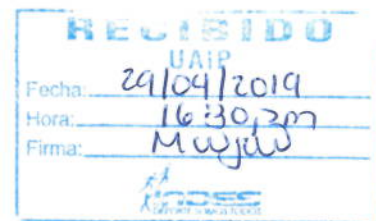 RECIBIDO
UAIP
Fecha: 29/04/2019
Hora: 16:30, pm
Firma:
INDES